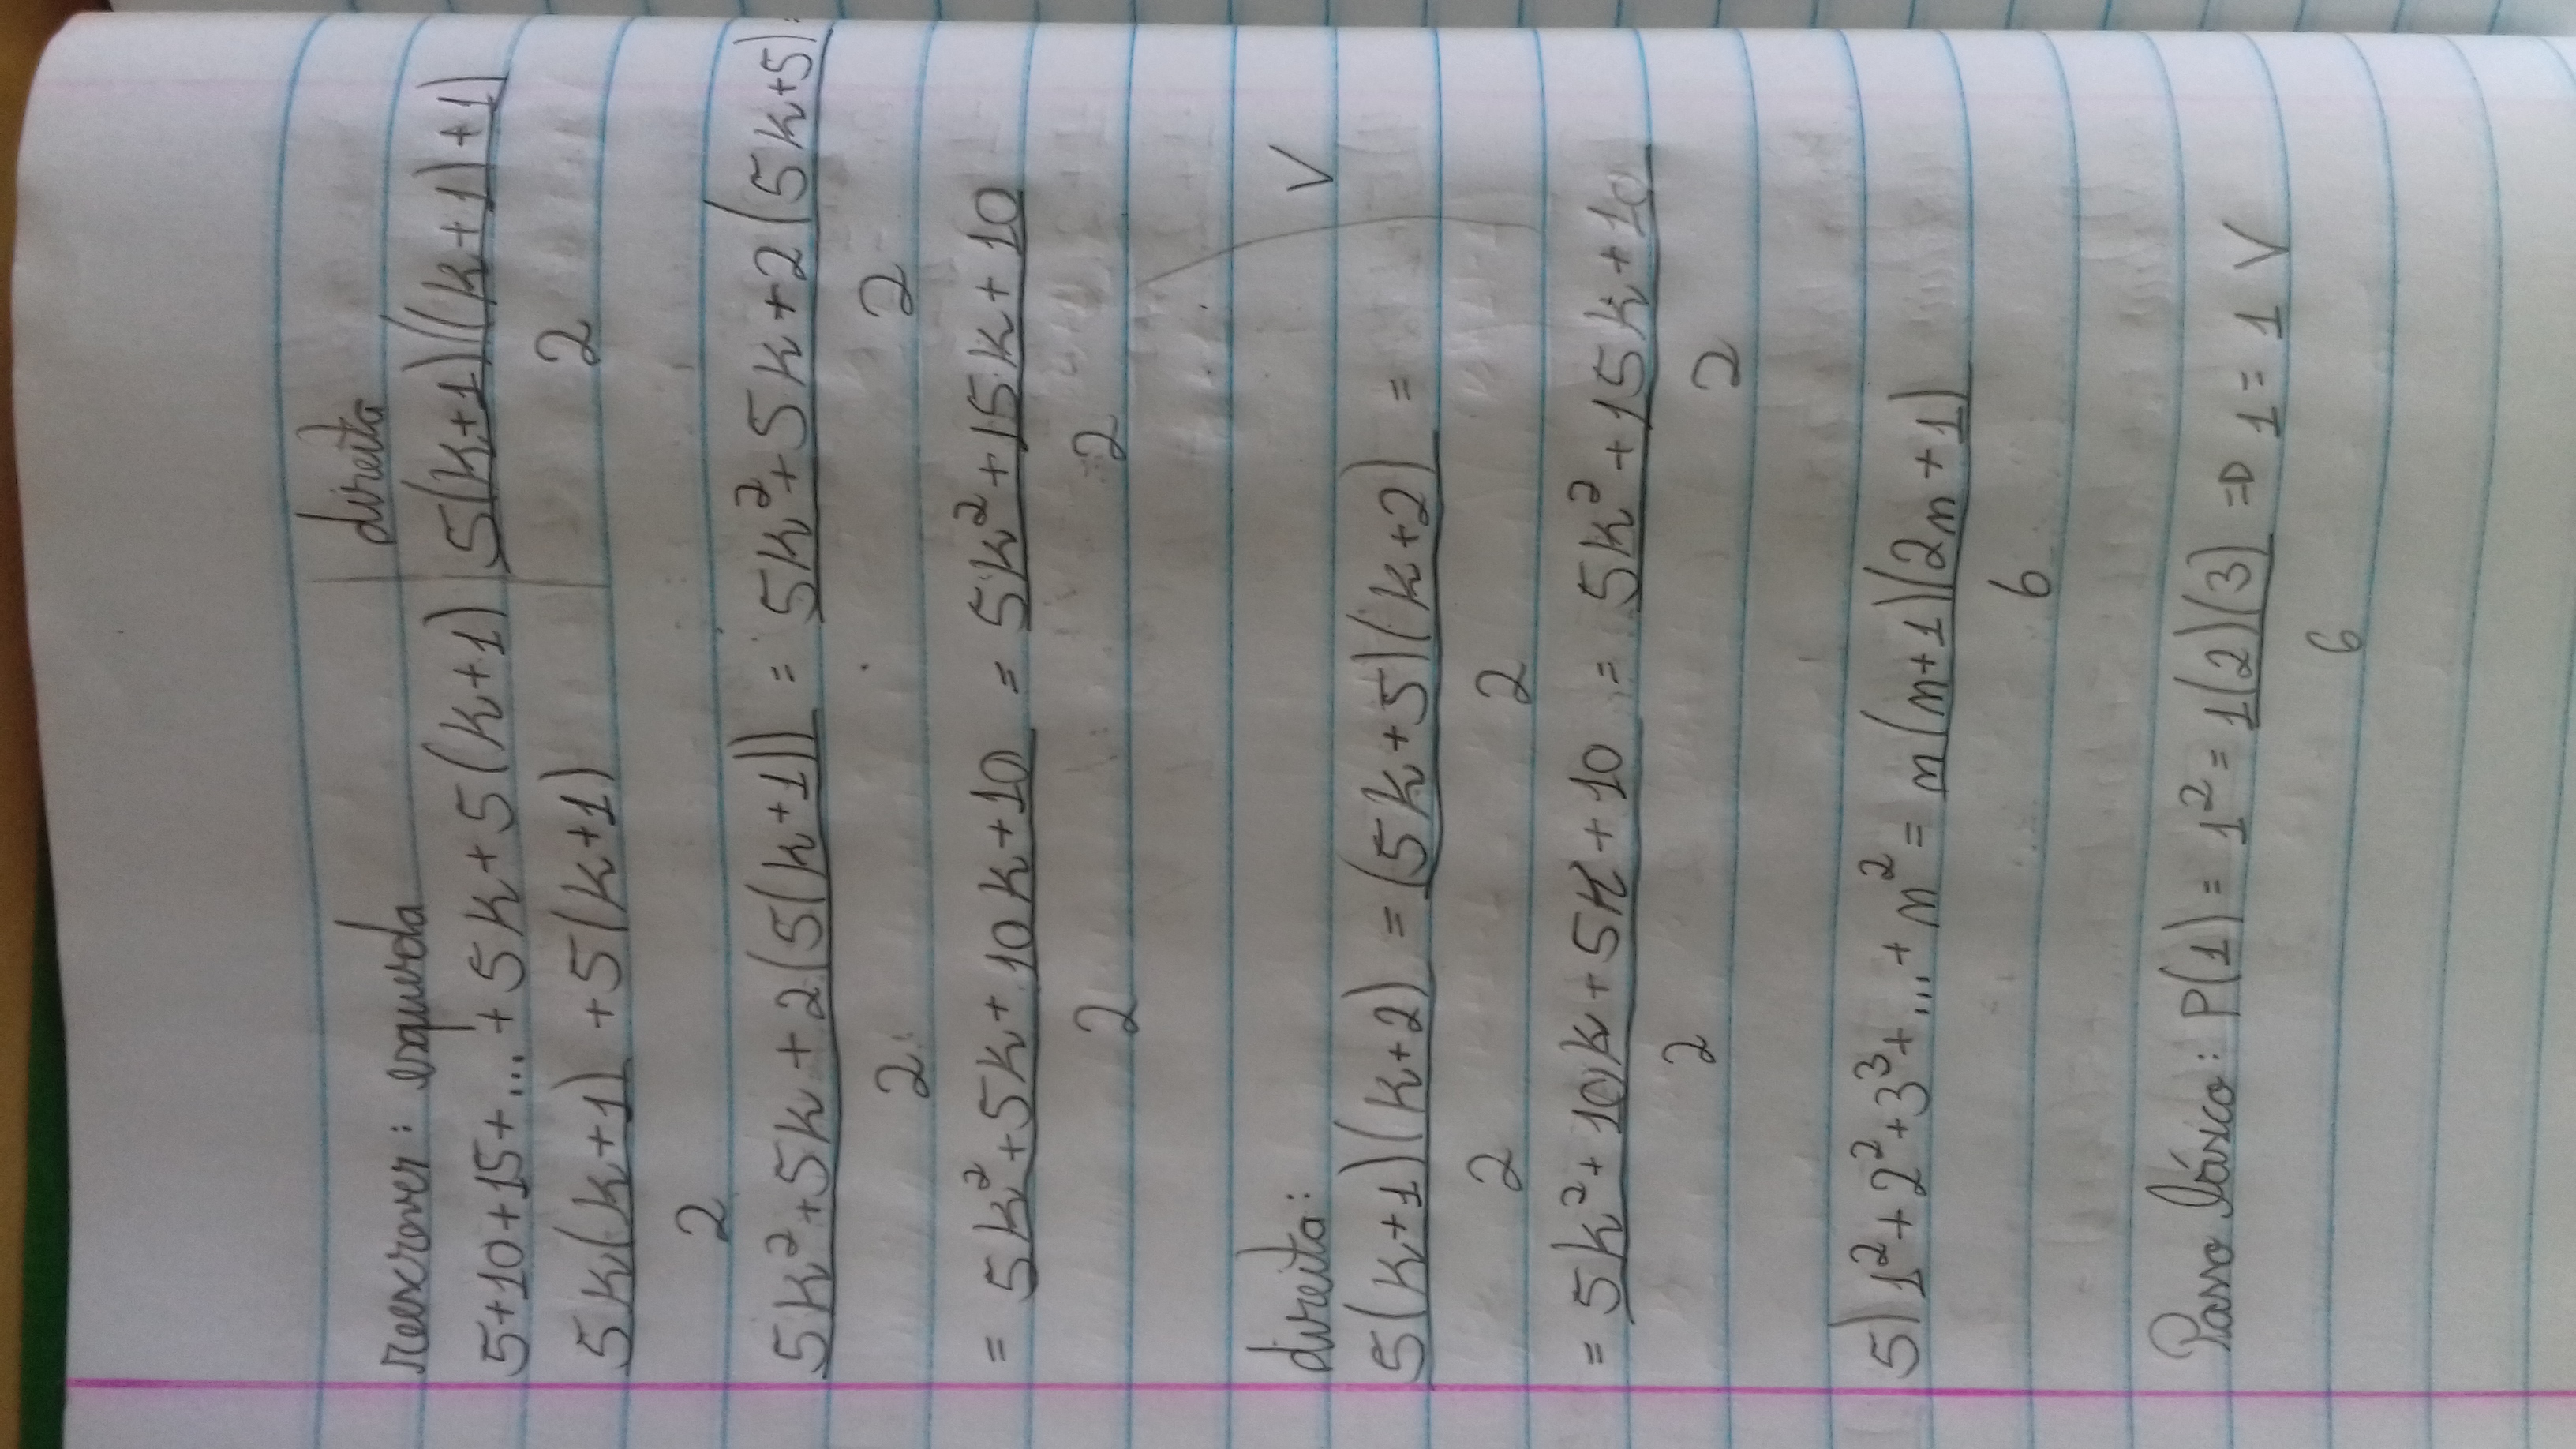 reescrever: esquerda | direita
5+10+15+...+5k+5(k+1) | 5(k+1)((k+1)+1)
2
5k(k+1) +5(k+1)
2
5k²+5k+2(5(k+1)) = 5k²+5k+2(5k+5) =
2 2
= 5k²+5k+10k+10 = 5k²+15k+10
2 2
V
direita:
5(k+1)(k+2) = (5k+5)(k+2) =
2 2
= 5k²+10k+5k+10 = 5k²+15k+10
2 2
5) 1²+2²+3³+...+n² = n(n+1)(2n+1)
6
Passo básico: P(1) = 1² = 1(2)(3) => 1=1 V
6